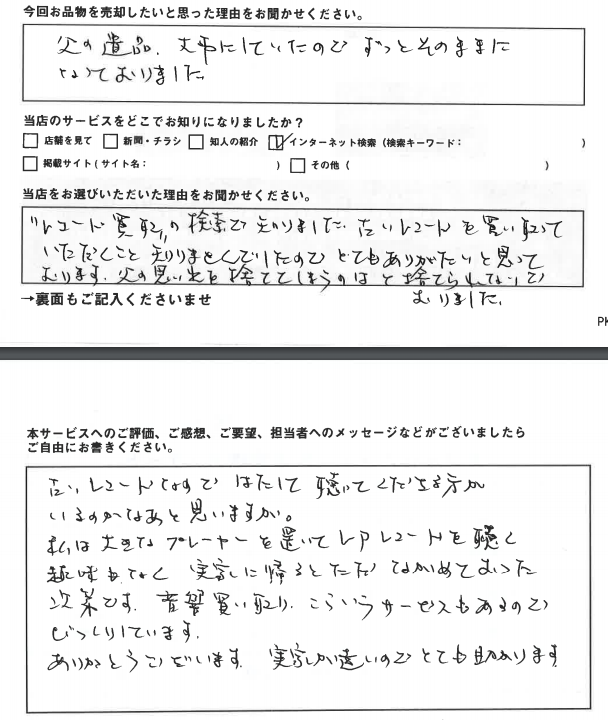 今回お品物を売却したいと思った理由をお聞かせください。
父の遺品、大事にしていたのでずっとそのままに
なっておりました。
当店のサービスをどこでお知りになりましたか？
□店舗を見て □新聞・チラシ □知人の紹介 ☑インターネット検索（検索キーワード： ）
□掲載サイト（サイト名： ） □その他（ ）
当店をお選びいただいた理由をお聞かせください。
"レコード買取"の検索で知りました。古いレコードを買い取って
いただくこと知りませんでしたのでとてもありがたいと思って
おります。父の思い出を捨ててしまうのはと捨てられないで
おりました。
→裏面もご記入くださいませ
PK
本サービスへのご評価、ご感想、ご要望、担当者へのメッセージなどがございましたら
ご自由にお書きください。
古いレコードなので はたして 聴いてくださる方が
いるのかなあと思いますが。
私は大きなプレーヤーを置いてLPレコードを聴く
趣味もなく 実家に帰るとただながめておった
次第です。音響買い取り、こういうサービスもあるので
びっくりしています。
ありがとうございます。実家が遠いのでとても助かります